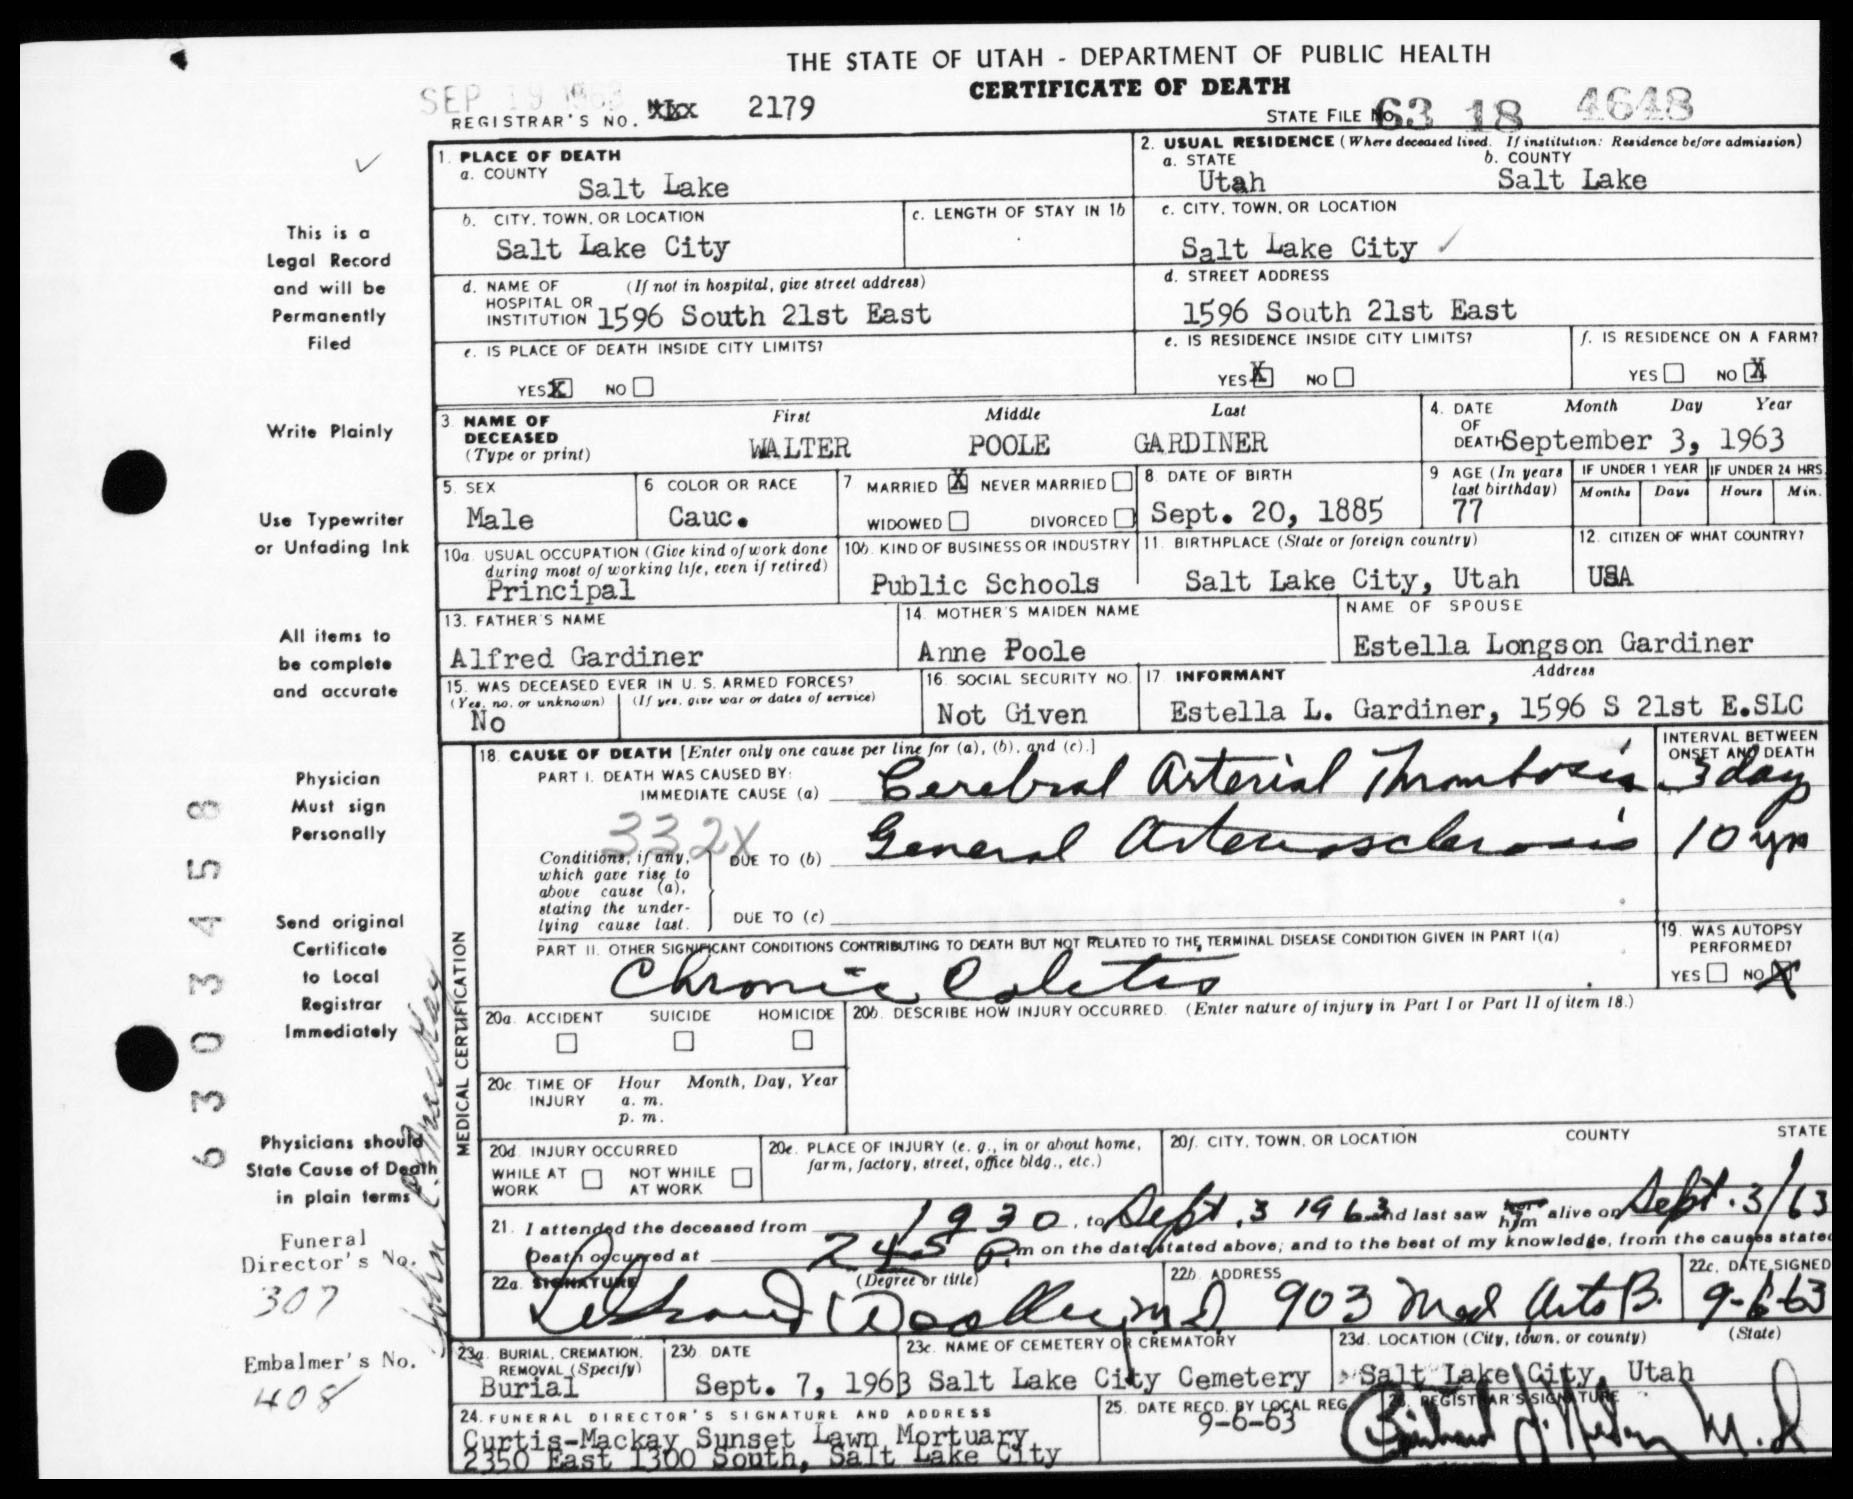 THE STATE OF UTAH - DEPARTMENT OF PUBLIC HEALTH
CERTIFICATE OF DEATH
SEP 19 1963
REGISTRAR'S NO. 2179
STATE FILE NO. 63 18 4648
1. PLACE OF DEATH
a. COUNTY
Salt Lake
2. USUAL RESIDENCE (Where deceased lived. If institution: Residence before admission)
a. STATE
Utah
b. COUNTY
Salt Lake
b. CITY, TOWN, OR LOCATION
Salt Lake City
c. LENGTH OF STAY IN 1b
c. CITY, TOWN, OR LOCATION
Salt Lake City ✓
d. NAME OF HOSPITAL OR INSTITUTION (If not in hospital, give street address)
1596 South 21st East
d. STREET ADDRESS
1596 South 21st East
e. IS PLACE OF DEATH INSIDE CITY LIMITS?
YES X NO
e. IS RESIDENCE INSIDE CITY LIMITS?
YES X NO
f. IS RESIDENCE ON A FARM?
YES NO X
3. NAME OF DECEASED (Type or print)
First Middle Last
WALTER POOLE GARDINER
4. DATE OF DEATH Month Day Year
September 3, 1963
5. SEX
Male
6 COLOR OR RACE
Cauc.
7 MARRIED X NEVER MARRIED
WIDOWED DIVORCED
8. DATE OF BIRTH
Sept. 20, 1885
9 AGE (In years last birthday)
77
IF UNDER 1 YEAR
Months Days
IF UNDER 24 HRS.
Hours Min.
10a. USUAL OCCUPATION (Give kind of work done during most of working life, even if retired)
Principal
10b. KIND OF BUSINESS OR INDUSTRY
Public Schools
11. BIRTHPLACE (State or foreign country)
Salt Lake City, Utah
12. CITIZEN OF WHAT COUNTRY?
USA
13. FATHER'S NAME
Alfred Gardiner
14. MOTHER'S MAIDEN NAME
Anne Poole
NAME OF SPOUSE
Estella Longson Gardiner
15. WAS DECEASED EVER IN U. S. ARMED FORCES?
(Yes, no, or unknown) (If yes, give war or dates of service)
No
16. SOCIAL SECURITY NO.
Not Given
17. INFORMANT Address
Estella L. Gardiner, 1596 S 21st E.SLC
MEDICAL CERTIFICATION
18. CAUSE OF DEATH [Enter only one cause per line for (a), (b), and (c).]
INTERVAL BETWEEN ONSET AND DEATH
PART I. DEATH WAS CAUSED BY:
IMMEDIATE CAUSE (a) Cerebral Arterial Thrombosis 3 days
332X
Conditions, if any, which gave rise to above cause (a), stating the underlying cause last.
DUE TO (b) General Arteriosclerosis 10 yrs
DUE TO (c)
PART II. OTHER SIGNIFICANT CONDITIONS CONTRIBUTING TO DEATH BUT NOT RELATED TO THE TERMINAL DISEASE CONDITION GIVEN IN PART I(a)
Chronic Colitis
19. WAS AUTOPSY PERFORMED?
YES NO X
20a. ACCIDENT SUICIDE HOMICIDE
20b. DESCRIBE HOW INJURY OCCURRED. (Enter nature of injury in Part I or Part II of item 18.)
20c. TIME OF INJURY Hour Month, Day, Year
a. m.
p. m.
20d. INJURY OCCURRED
WHILE AT WORK NOT WHILE AT WORK
20e. PLACE OF INJURY (e. g., in or about home, farm, factory, street, office bldg., etc.)
20f. CITY, TOWN, OR LOCATION COUNTY STATE
21. I attended the deceased from 1930, to Sept. 3 1963 and last saw him alive on Sept. 3/63
Death occurred at 245 P.m on the date stated above; and to the best of my knowledge, from the causes stated
22a. SIGNATURE (Degree or title)
Woolley M D
22b. ADDRESS
903 Med Arts B.
22c. DATE SIGNED
9-6-63
23a. BURIAL, CREMATION, REMOVAL (Specify)
Burial
23b. DATE
Sept. 7, 1963
23c. NAME OF CEMETERY OR CREMATORY
Salt Lake City Cemetery
23d. LOCATION (City, town, or county) (State)
Salt Lake City, Utah
24. FUNERAL DIRECTOR'S SIGNATURE AND ADDRESS
Curtis-Mackay Sunset Lawn Mortuary
2350 East 1300 South, Salt Lake City
25. DATE RECD. BY LOCAL REG.
9-6-63
26. REGISTRAR'S SIGNATURE
M.D
This is a
Legal Record
and will be
Permanently
Filed
Write Plainly
Use Typewriter
or Unfading Ink
All items to
be complete
and accurate
Physician
Must sign
Personally
Send original
Certificate
to Local
Registrar
Immediately
Physicians should
State Cause of Death
in plain terms
Funeral
Director's No.
307
Embalmer's No.
408
6303458